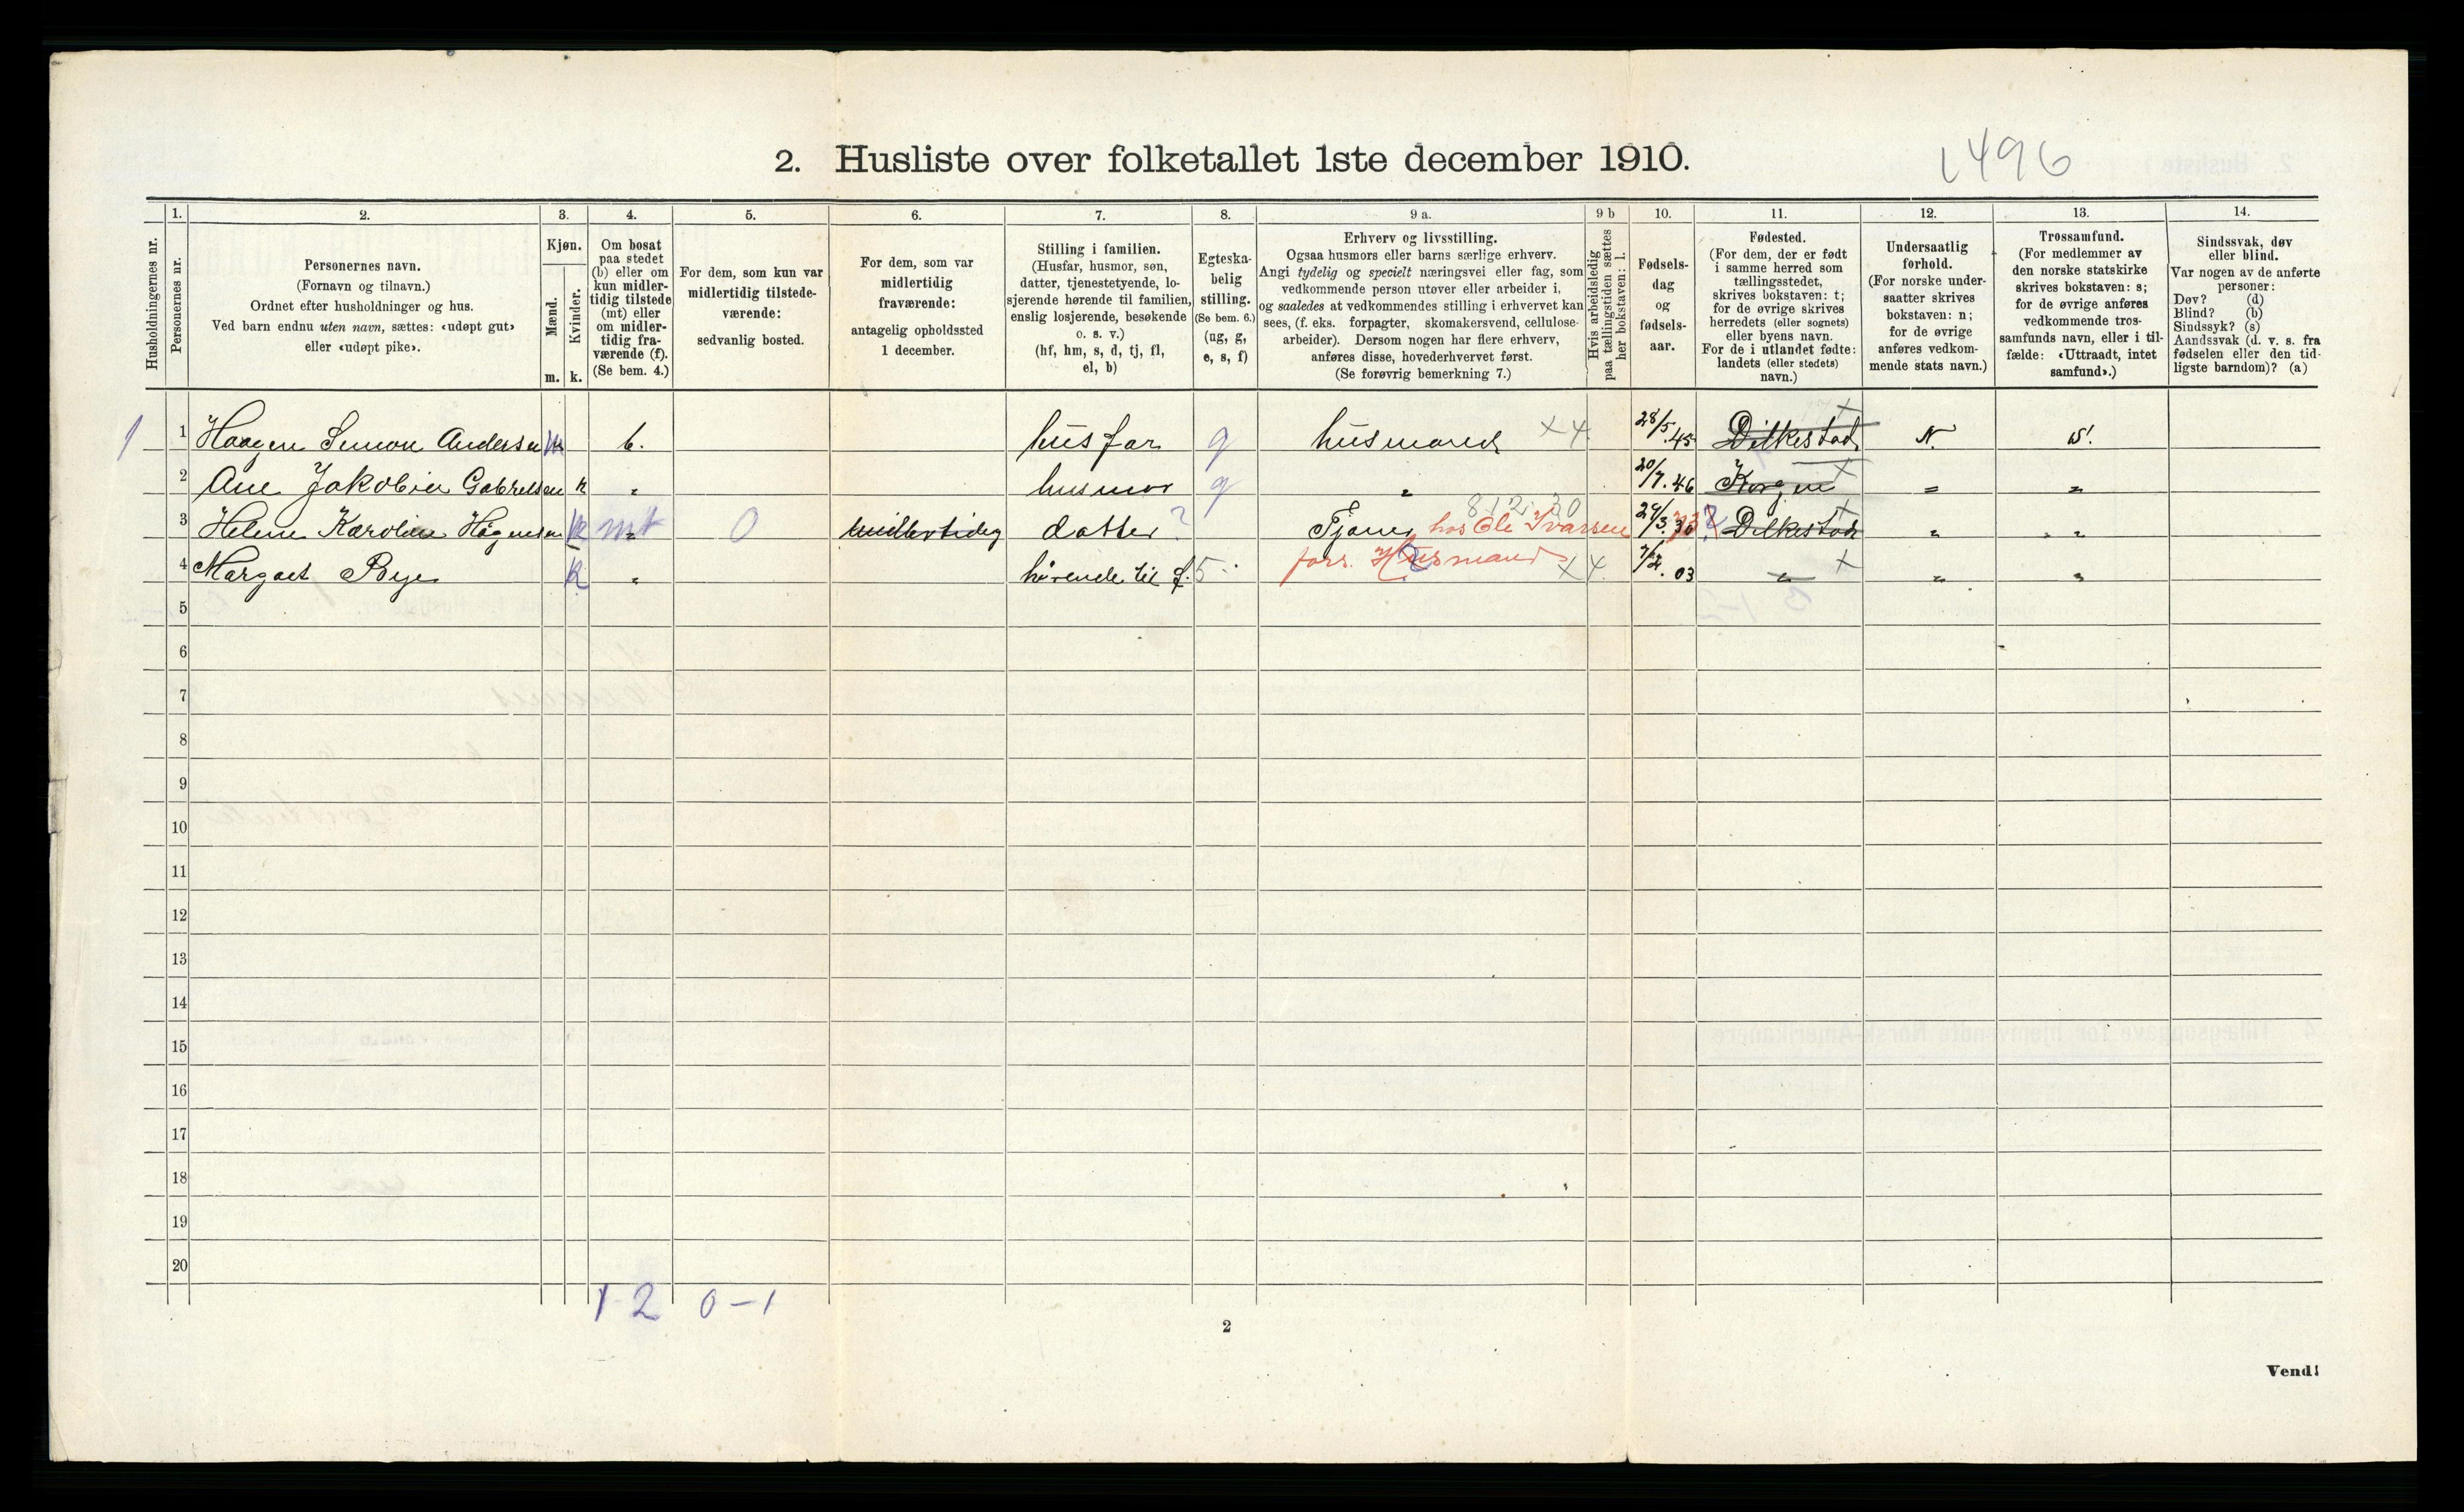 2. Husliste over folketallet 1ste december 1910.
1496
1. 2. 3. 4. 5. 6. 7. 8. 9 a. 9 b 10. 11. 12. 13. 14.
Husholdningernes nr.
Personernes nr.
Personernes navn.
(Fornavn og tilnavn.)
Ordnet efter husholdninger og hus.
Ved barn endnu uten navn, sættes: «udøpt gut»
eller «udøpt pike».
Kjøn.
Mænd.
Kvinder.
m. k.
Om bosat
paa stedet
(b) eller om
kun midler-
tidig tilstede
(mt) eller
om midler-
tidig fra-
værende (f).
(Se bem. 4.)
For dem, som kun var
midlertidig tilstede-
værende:
sedvanlig bosted.
For dem, som var
midlertidig
fraværende:
antagelig opholdssted
1 december.
Stilling i familien.
(Husfar, husmor, søn,
datter, tjenestetyende, lo-
sjerende hørende til familien,
enslig losjerende, besøkende
o. s. v.)
(hf, hm, s, d, tj, fl,
el, b)
Egteska-
belig
stilling.
(Se bem. 6.)
(ug, g,
e, s, f)
Erhverv og livsstilling.
Ogsaa husmors eller barns særlige erhverv.
Angi tydelig og specielt næringsvei eller fag, som
vedkommende person utøver eller arbeider i,
og saaledes at vedkommendes stilling i erhvervet kan
sees, (f. eks. forpagter, skomakersvend, cellulose-
arbeider). Dersom nogen har flere erhverv,
anføres disse, hovederhvervet først.
(Se forøvrig bemerkning 7.)
Hvis arbeidsledig
paa tællingstiden sættes
her bokstaven: l.
Fødsels-
dag
og
fødsels-
aar.
Fødested.
(For dem, der er født
i samme herred som
tællingsstedet,
skrives bokstaven: t;
for de øvrige skrives
herredets (eller sognets)
eller byens navn.
For de i utlandet fødte:
landets (eller stedets)
navn.)
Undersaatlig
forhold.
(For norske under-
saatter skrives
bokstaven: n;
for de øvrige
anføres vedkom-
mende stats navn.)
Trossamfund.
(For medlemmer av
den norske statskirke
skrives bokstaven: s;
for de øvrige anføres
vedkommende tros-
samfunds navn, eller i til-
fælde: «Uttraadt, intet
samfund».)
Sindssvak, døv
eller blind.
Var nogen av de anførte
personer:
Døv? (d)
Blind? (b)
Sindssyk? (s)
Aandssvak (d. v. s. fra
fødselen eller den tid-
ligste barndom)? (a)
1 1 Haagen Simon Andersen m b. husfar g husmand x 4 28/5.45 Dilkestad N. s!
2 Ane Jakobine Gabrielsen k „ husmor g „ 20/7.46 Korgen „ „
3 Helene Karoline Høgensen k mt 0 midlertidig datter ? Tjener hos Ole Ivarsen 24/3. Dilkestad „ „
4 Margaet Bye k „ hørende til f. fors. Husmand x 4. 7/2.03 „ „ „
5
6
7
8
9
10
11
12
13
14
15
16
17
18
19
20
1 2 0-1
2
Vend!